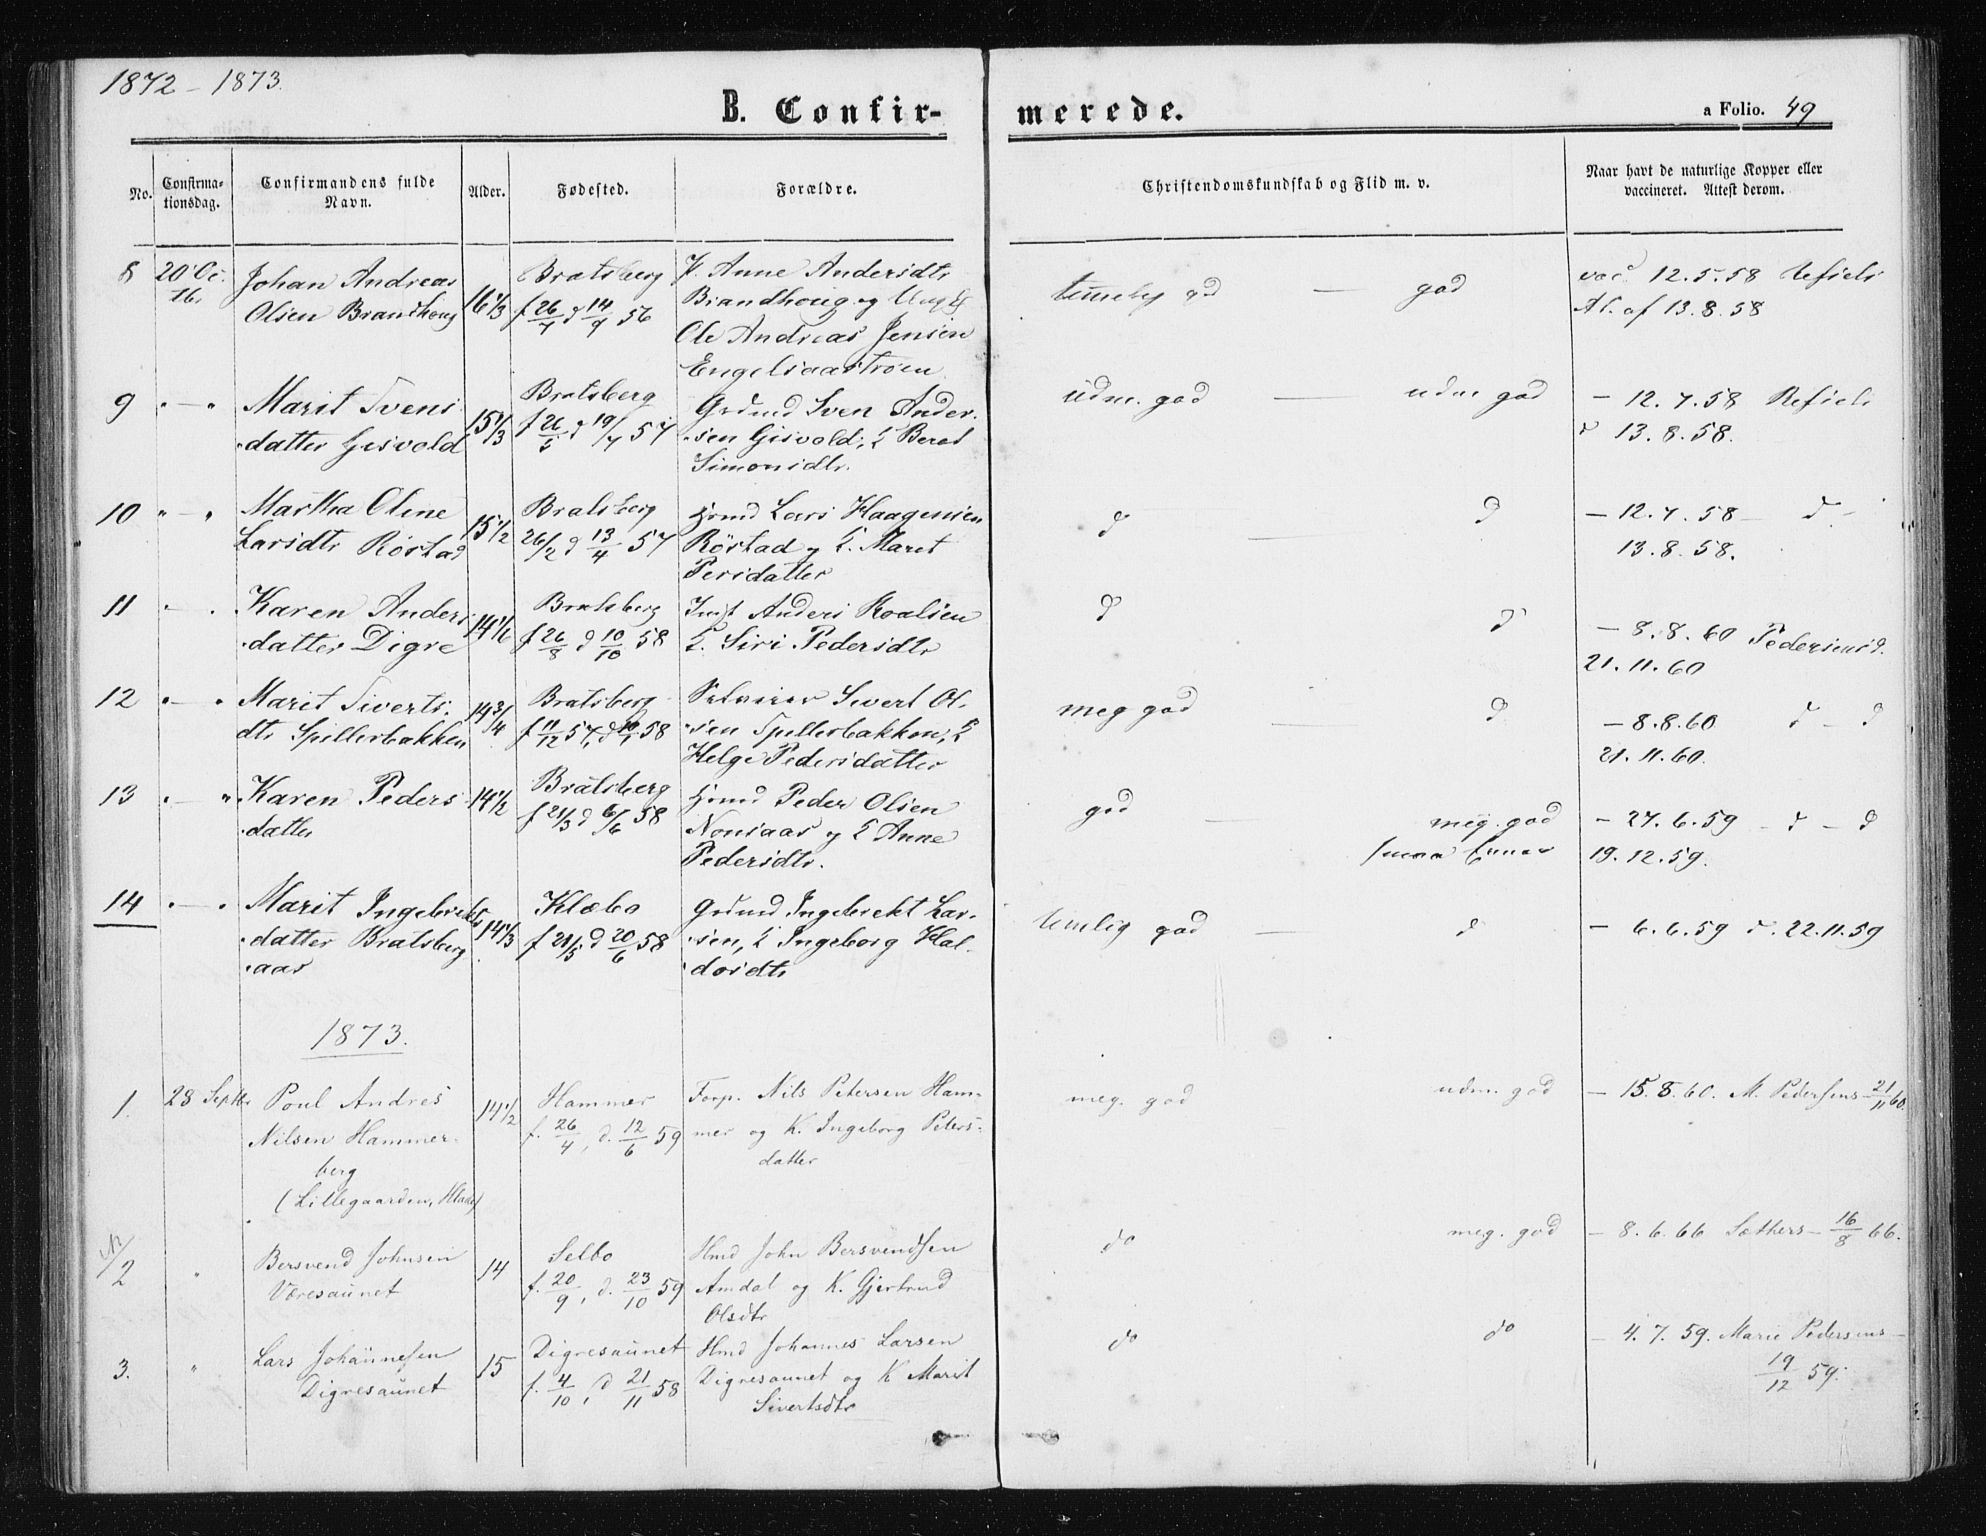 1872 - 1873.
B. Confirmerede.
a Folio. 49
No.
Confirmationsdag.
Confirmandens fulde Navn.
Alder.
Fødested.
Forældre.
Christendomskundskab og Flid m. v.
Naar havt de naturlige Kopper eller vaccineret. Attest derom.
8 20' Oc
Johan Andreas
Olsen Brandhoug
16 1/3
Bratsberg
f 26/7 d 14/9 56
P. Anne Andersdtr
Brandhoug og Ungk
Ole Andreas Jensen
Engelsaastrøen
god
vac. 12.5.58 Refsels
At. af 13.8.58
9 " — "
Marit Svens
datter Gisvold
15 1/3
Bratsberg
f 26/5 d 19/7 57
Grdmd Sven Ander-
sen Gisvold, K Beret
Simonsdtr.
udm. god — udm god
- 12.7.58 Refsels
d 13.8.58.
10 " — "
Martha Oline
Larsdtr Rørstad
15 1/2
Bratsberg
26/2 d 13/4 57
Hsmd Lars Haagensen
Rørstad og K. Maret
Persdatter
d — d
- 12.7.58 - d -
13.8.58.
11 " — "
Karen Anders
datter Digre
14 1/6
Bratsberg
f 26/8 d 10/10 58
Inst Anders Roalsen
K. Siri Pedersdtr
d d
- 8.8.60 Pedersens d.
21.11.60
12 " — "
Marit Siverts
dtr Spillerbakken
14 3/4
Bratsberg
f 11/12 57, d 10/1 58
Sivert Ol-
sen Spellerbakken, K
Helge Pedersdatter
meg god — d
- 8.8.60 d - d
21.11.60.
13 " — "
Karen Peders
datter
14 1/2
Bratsberg
f 21/3 d 6/6 58
Hsmd Peder Olsen
Nonsaas og K Anne
Pedersdtr.
god — meg. god
- 27.6.59 - d - d
19.12.59.
14 " — "
Marit Ingebrekts
datter Bratsberg
aas
14 1/3
Klæbo
f 21/5 d 20/6 58
Grdmd Ingebrekt Lar-
sen, K Ingeborg Hal-
dorsdtr
temlig god — d
- 6.6.59 d. 22.11.59
1873.
1. 28 Septbr
Poul Andres
Nilsen Hammer-
berg
(Lillegaarden,
14 1/2
Hammer
f. 26/4, d. 12/6 59
Forp. Nils Petersen Ham-
mer og K. Ingeborg Peters-
datter
meg. god udm. god
- 15.8.60. M. Pedersens 21/11 60.
2 "
Bersvend Johnsen
Væresaunet
14
Selbo
f. 20/9, d. 23/10 59
Hmd John Bersvendsen
Amdal og K. Gjertrud
Olsdtr
do — meg. god
- 8.6.66 Sæthers - 16/8 66.
3. "
Lars Johannesen
Digresaunet
15
Digresaunet
f. 4/10, d 21/11 58
Hmd Johannes Larsen
Digresaunet og K Marit
Sivertsdtr
do do
- 4.7.59. Marie Pedersens -
19/12 59.